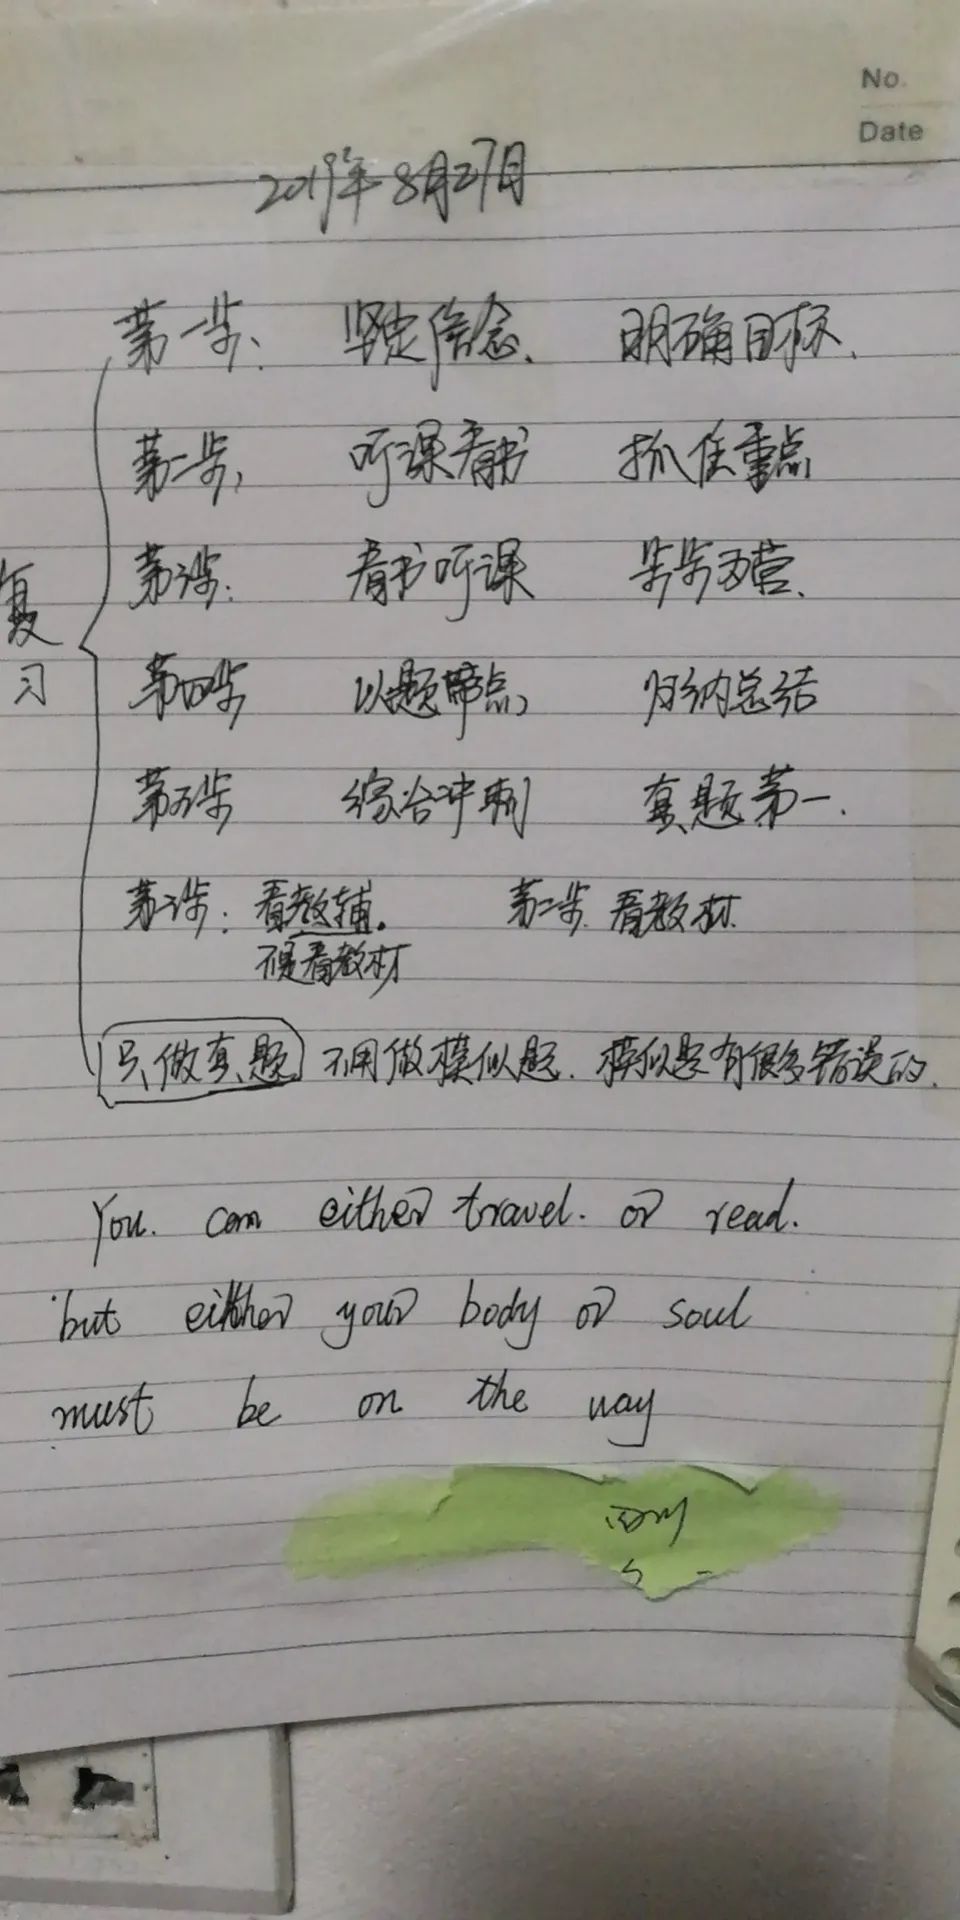 No.
Date
2019年8月27日
第一步、 坚定信念、 明确目标、
第二步, 听课看书 抓住重点
第三步: 看书听课 步步为营、
复习
第四步 以题带点, 归纳总结
第五步 综合冲刺 套题第一.
第三步: 看教辅. 第二步. 看教材.
不是看教材
只做真题 不用做模似题. 模似题有很多错误的.
You. can either travel. or read.
but either your body or soul
must be on the way